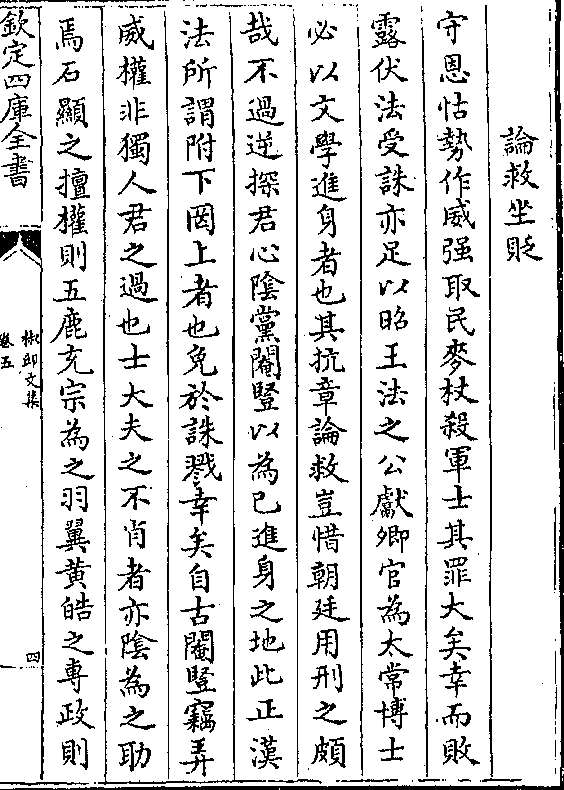 論救坐貶
守恩怙勢作威强取民麥杖殺軍士其罪大矣幸而敗
露伏法受誅亦足以昭王法之公獻卿官為太常博士
必以文學進身者也其抗章論救豈惜朝廷用刑之頗
哉不過逆探君心陰黨閹豎以為已進身之地此正漢
法所謂附下罔上者也免於誅戮幸矣自古閹豎竊弄
威權非獨人君之過也士大夫之不肖者亦陰為之助
焉石顯之擅權則五鹿充宗為之羽翼黄皓之專政則
欽定四庫全書
椒邱文集
卷五
四